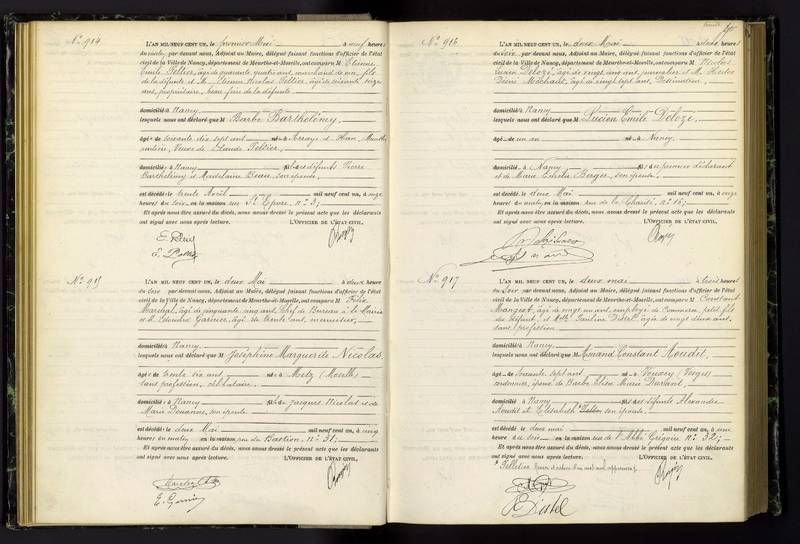 N° 914
L'AN MIL NEUF CENT UN, le premier Mai à neuf heures
du matin, par devant nous, Adjoint au Maire, délégué faisant fonctions d'officier de l'état
civil de la Ville de Nancy, département de Meurthe-et-Moselle, ont comparu M Etienne
Emile Peltier, âgé de quarante quatre ans, marchand de vin, fils
de la défunte et M. Etienne Nicolas Peltier, âgé de soixante seize
ans, propriétaire, beau frère de la défunte.
domiciliés à Nancy
lesquels nous ont déclaré que M Barbe Barthélémy
âgée de soixante dix sept ans née à Arraye et Han, Meurthe
rentière, Veuve de Claude Peltier.
domiciliée à Nancy fille des défunts Pierre
Barthélémy et Madeleine Beau, son épouse,
est décédée le trente Avril mil neuf cent un, à onze
heures du soir, en la maison rue St Epvre, n° 3;
Et après nous être assuré du décès, nous avons dressé le présent acte que les déclarants
ont signé avec nous après lecture. L'OFFICIER DE L'ÉTAT CIVIL,
N° 915
L'AN MIL NEUF CENT UN, le deux Mai à deux heures
du soir par devant nous, Adjoint au Maire, délégué faisant fonctions d'officier de l'état
civil de la Ville de Nancy, département de Meurthe-et-Moselle, ont comparu M Félix
Marchal, âgé de cinquante cinq ans, Chef de Bureau à la Mairie
et M. Edmond Garnier, âgé de trente ans, menuisier,
domiciliés à Nancy
lesquels nous ont déclaré que M Joséphine Marguerite Nicolas,
âgée de trente six ans, née à Metz (Moselle)
sans profession, célibataire.
domiciliée à Nancy fille de Jacques Nicolas et de
Marie, son épouse
est décédée le deux Mai mil neuf cent un, à cinq
heures du matin en la maison rue du Bastion, n° 31;
Et après nous être assuré du décès, nous avons dressé le présent acte que les déclarants
ont signé avec nous après lecture. L'OFFICIER DE L'ÉTAT CIVIL,
N° 916
L'AN MIL NEUF CENT UN, le deux Mai à trois heures
du soir par devant nous, Adjoint au Maire, délégué faisant fonctions d'officier de l'état
civil de la Ville de Nancy, département de Meurthe-et-Moselle, ont comparu M Nicolas
Lucien Deloze, âgé de vingt cinq ans, journalier et M.
Pierre, âgé de vingt sept ans, Dessinateur,
domiciliés à Nancy
lesquels nous ont déclaré que M Lucien Emile Deloze,
âgé de un an né à Nancy
domicilié à Nancy fils du premier déclarant
et de Marie Emélie Berger, son épouse,
est décédé le deux Mai mil neuf cent un, à onze
heures du matin, en la maison rue de la Charité, n° 16;
Et après nous être assuré du décès, nous avons dressé le présent acte que les déclarants
ont signé avec nous après lecture. L'OFFICIER DE L'ÉTAT CIVIL,
N° 917
L'AN MIL NEUF CENT UN, le deux mai à trois heures
du soir par devant nous, Adjoint au Maire, délégué faisant fonctions d'officier de l'état
civil de la Ville de Nancy, département de Meurthe-et-Moselle, ont comparu M Constant
Mangeot, âgé de vingt un ans, employé de Commerce, petit fils
du défunt, et Melle Pauline Distel, âgée de vingt deux ans,
sans profession
domiciliés à Nancy
lesquels nous ont déclaré que M Amand Constant Aoudit,
âgé de soixante sept ans né à Vouxey (Vosges)
époux de Barbe Elisa Marie Durant,
domicilié à Nancy fils des défunts Alexandre
Aoudit et Elisabeth son épouse,
est décédé le deux mai mil neuf cent un, à une
heure du soir en la maison rue de l'Abbé Grégoire n° 32;
Et après nous être assuré du décès, nous avons dressé le présent acte que les déclarants
ont signé avec nous après lecture. L'OFFICIER DE L'ÉTAT CIVIL,
Distel